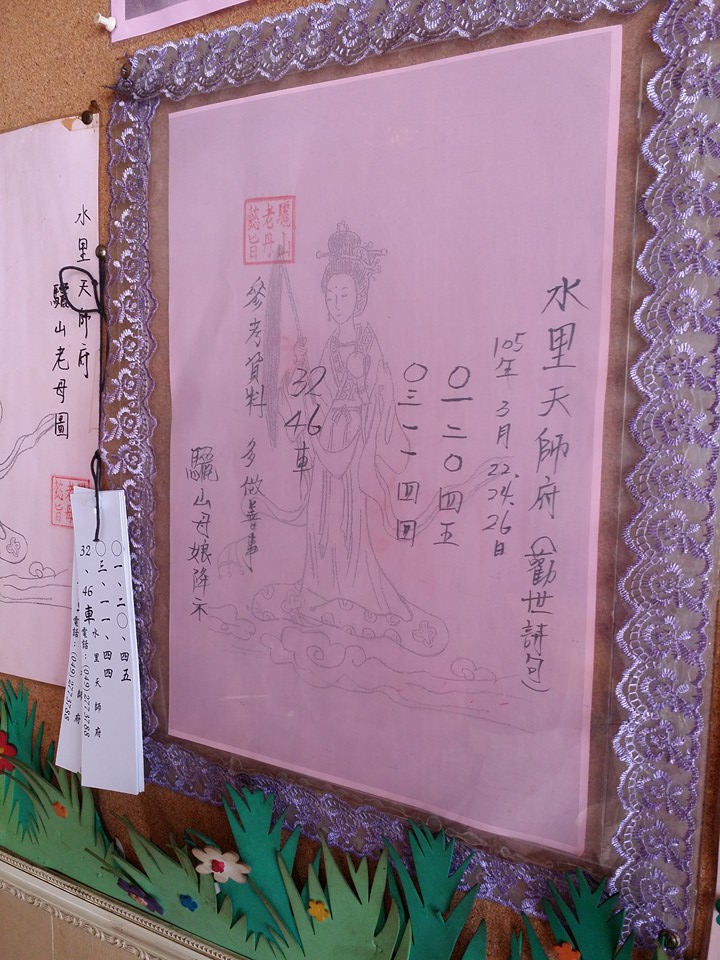 水里天師府(勸世詩句)
105年 3月 22.24.26日
〇一 二〇 四五
〇三 一一 四四
32
46 車
參考資料 多做善事
驪山母娘降示
驪山
老母
懿旨
水里天師府
驪山老母圖
〇一、二〇、四五
〇三、一一、四四
32、46車
水里天師府
電話:(049)2773788
電話:(049)2773788